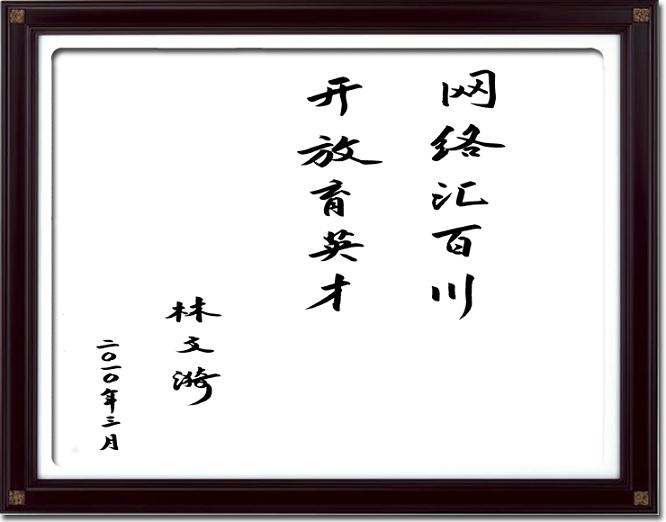 网络汇百川
开放育英才
林文漪
二〇一〇年三月